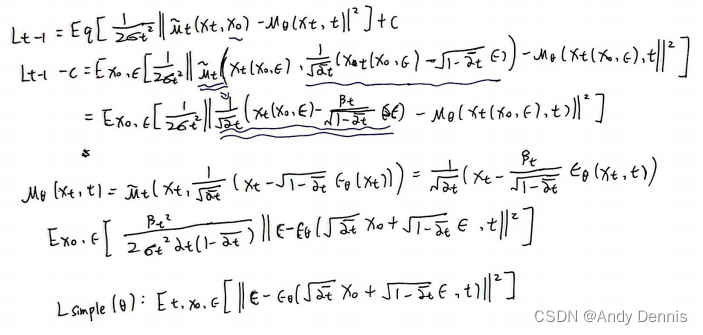 Lt-1 = Eq[ 1/(2σt²) ‖ũt(xt, x0) - μθ(xt, t)‖² ] + C
Lt-1 - C = Ex0,ϵ[ 1/(2σt²) ‖ũt(xt(x0, ϵ), 1/√ᾱt (xt(x0, ϵ) - √(1-ᾱt) ϵ)) - μθ(xt(x0, ϵ), t)‖² ]
= Ex0,ϵ[ 1/(2σt²) ‖1/√αt (xt(x0, ϵ) - βt/√(1-ᾱt) ϵ) - μθ(xt(x0, ϵ), t)‖² ]
μθ(xt, t) = ũt(xt, 1/√ᾱt (xt - √(1-ᾱt) ϵθ(xt))) = 1/√αt (xt - βt/√(1-ᾱt) ϵθ(xt, t))
Ex0,ϵ[ βt²/(2σt² αt(1-ᾱt)) ‖ϵ - ϵθ(√ᾱt x0 + √(1-ᾱt) ϵ, t)‖² ]
Lsimple(θ): Et,x0,ϵ[ ‖ϵ - ϵθ(√ᾱt x0 + √(1-ᾱt) ϵ, t)‖² ]
CSDN @Andy Dennis